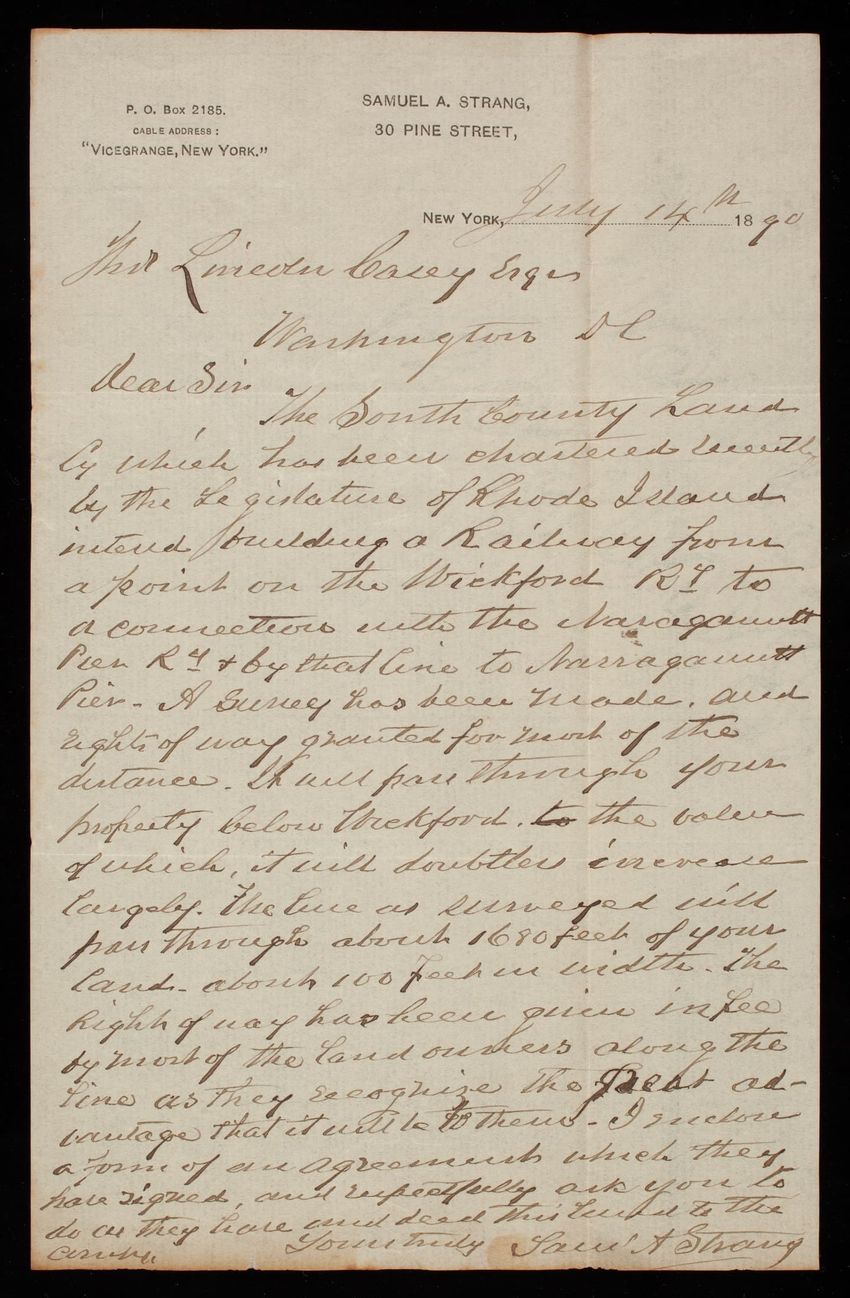 P. O. Box 2185.
CABLE ADDRESS:
"VICEGRANGE, NEW YORK."
SAMUEL A. STRANG,
30 PINE STREET,
NEW YORK, July 14th 1890
Thos Lincoln Casey Esqr
Washington D C
Dear Sir
The South County Land
Cy which has been chartered recently
by the Legislature of Rhode Island
intend building a Railway from
a point on the Wickford Ry to
a connection with the Naragansett
Pier Ry & by that line to Narragansett
Pier - A survey has been made, and
rights of way granted for most of the
distance. It will pass through your
property below Wickford. to the value
of which, it will doubtless increase
largely. The line as surveyed will
pass through about 1680 feet of your
land - about 100 feet in width. The
Right of way has been given in fee
by most of the land owners along the
line as they recognize the great ad-
vantage that it will be to them - I enclose
a form of an agreement which they
have signed, and respectfully ask you to
do as they have and deed this land to the
Yours truly Saml A Strang